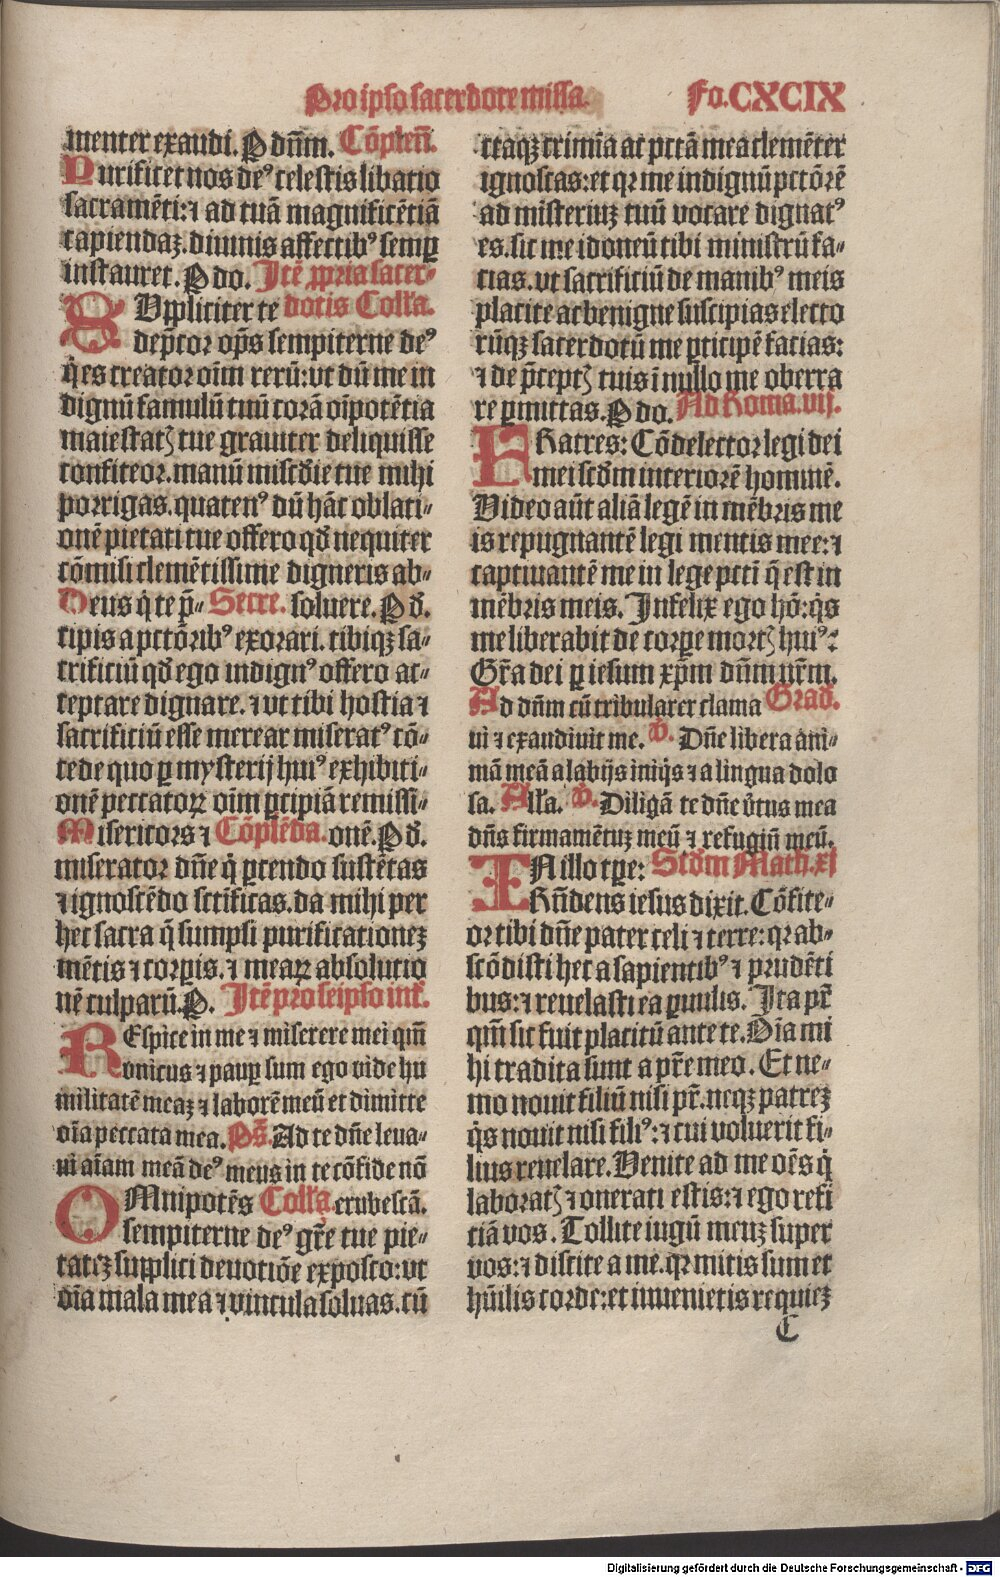 Pro ipso sacerdote missa. Fo. CXCIX
menter exaudi. P dn̄m. Cōplen̄.
Purificet nos deꝰ celestis libatio
sacramēti: ⁊ ad tuā magnificētiā
capiendaꝫ. diuinis affectibꝰ semꝑ
instauret. P do. Itē ꝓpria sacer-
SUppliciter te dotis Coll'a.
dep̄cor op̄s sempiterne deꝰ
q̇ es creator oīm rerū: vt dū me in
dignū famulū tuū corā oīpotētia
maiestatꝭ tue grauiter deliquisse
confiteor. manū misc̄die tue mihi
porrigas. quatenꝰ dū hāc oblati-
onē pietati tue offero qd̄ nequiter
cōmisi clemētissime digneris ab-
Deus q̇ te p̄- Secre. soluere. P d̄.
cipis a pctōribꝰ exorari. tibiqꝫ sa-
crificiū qd̄ ego indignꝰ offero ac-
ceptare dignare. ⁊ vt tibi hostia ⁊
sacrificiū esse merear miseratꝰ cō-
cede quo ꝑ mysterij huiꝰ exhibiti-
onē peccatoꝝ oīm ꝑcipiā remissi-
Misericors ⁊ Cōplēda. onē. P d̄.
miserator dn̄e q̇ ꝑcendo sustētas
⁊ ignoscēdo sctificas. da mihi per
hec sacra q̄ sumpsi purificationeꝫ
mētis ⁊ corꝑis. ⁊ meaꝝ absolutio
nē culparū. P. Itē pro seipso int̄.
REspice in me ⁊ miserere mei qm̄
vnicus ⁊ pauꝑ sum ego vide hu
militatē meaꝫ ⁊ laborē meū et dimitte
oīa peccata mea. Ps̄. Ad te dn̄e leua-
ui aīam meā deꝰ meus in te cōfide nō
OMnipotēs Coll'a. erubescā.
sempiterne deꝰ gr̄e tue pie-
tateꝫ supplici deuotiōe exposco: vt
oīa mala mea ⁊ vincula soluas. cū
ctaqꝫ crimīa ac pctā mea clemēter
ignoscas: et qꝛ me indignū pctōrē
ad misteriuꝫ tuū vocare dignatꝰ
es. sic me idoneū tibi ministrū fa-
cias. vt sacrificiū de manibꝰ meis
placite ac benigne suscipias electo
rūqꝫ sacerdotū me ꝑticipē facias:
⁊ de p̄ceptꝭ tuis ī nullo me oberra
re ꝑmittas. P do. Ad Roma. vij.
FRatres: Cōdelector legi dei
mei scd̄m interiorē hominē.
Video aūt aliā legē in mēbris me
is repugnantē legi mentis mee: ⁊
captiuantē me in lege pcti q̄ est in
mēbris meis. Infelix ego hō: q̇s
me liberabit de corꝑe mortꝭ huiꝰ:
Gr̄a dei ꝑ iesum xp̄m dn̄m nr̄m.
Ad dn̄m cū tribularer clama Grad̄.
ui ⁊ exaudiuit me. v̄. Dn̄e libera ani-
mā meā a labijs iniq̇s ⁊ a lingua dolo
sa. All'a. v̄. Diligā te dn̄e v̄tus mea
dn̄s firmamētuꝫ meū ⁊ refugiū meū.
IN illo tꝑe: Scd̄m Math. xi
Rn̄dens iesus dixit. Cōfite-
or tibi dn̄e pater celi ⁊ terre: qꝛ ab-
scōdisti hec a sapientibꝰ ⁊ prudēti
bus: ⁊ reuelasti ea ꝑuulis. Ita pr̄
qm̄ sic fuit placitū ante te. Oīa mi
hi tradita sunt a pr̄e meo. Et ne-
mo nouit filiū nisi pr̄. neqꝫ patreꝫ
q̇s nouit nisi filiꝰ: ⁊ cui voluerit fi-
lius reuelare. Venite ad me oēs q̇
laboratꝭ ⁊ onerati estis: ⁊ ego refi
ciā vos. Tollite iugū meuꝫ super
vos: ⁊ discite a me. qꝛ mitis sum et
hūilis corde: et inuenietis requieꝫ
C
Digitalisierung gefördert durch die Deutsche Forschungsgemeinschaft - DFG